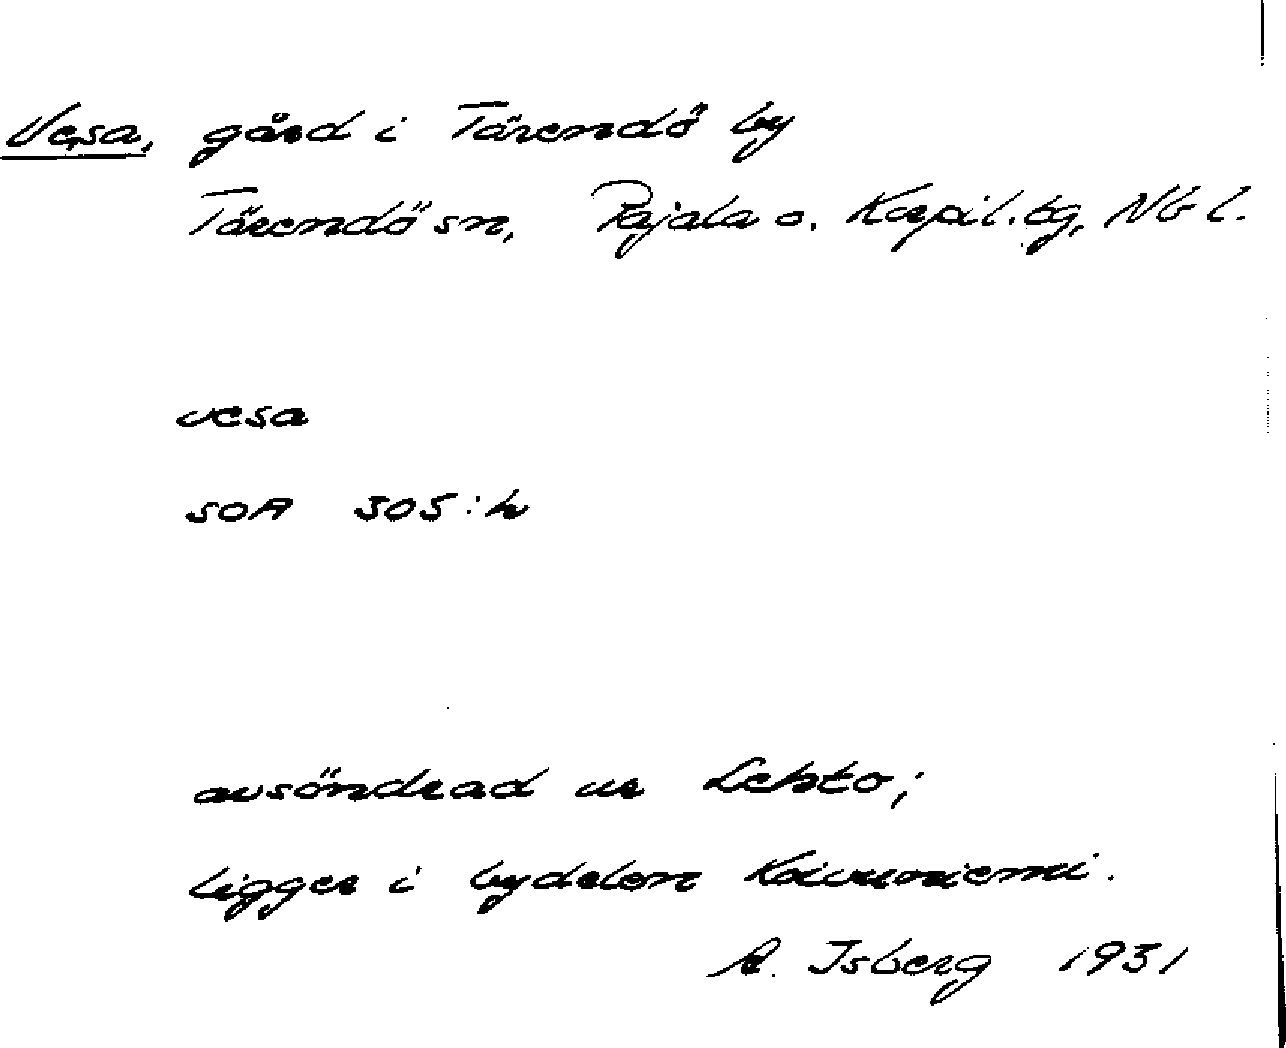 Vesa, gård i Tärendö by
Tärendö sn, Pajala o. Korpil. tg, Nb l.
vesa
SOA 305:h
avsöndrad ur Lehto;
ligger i bydelen Koivuniemi.
A. Isberg 1931